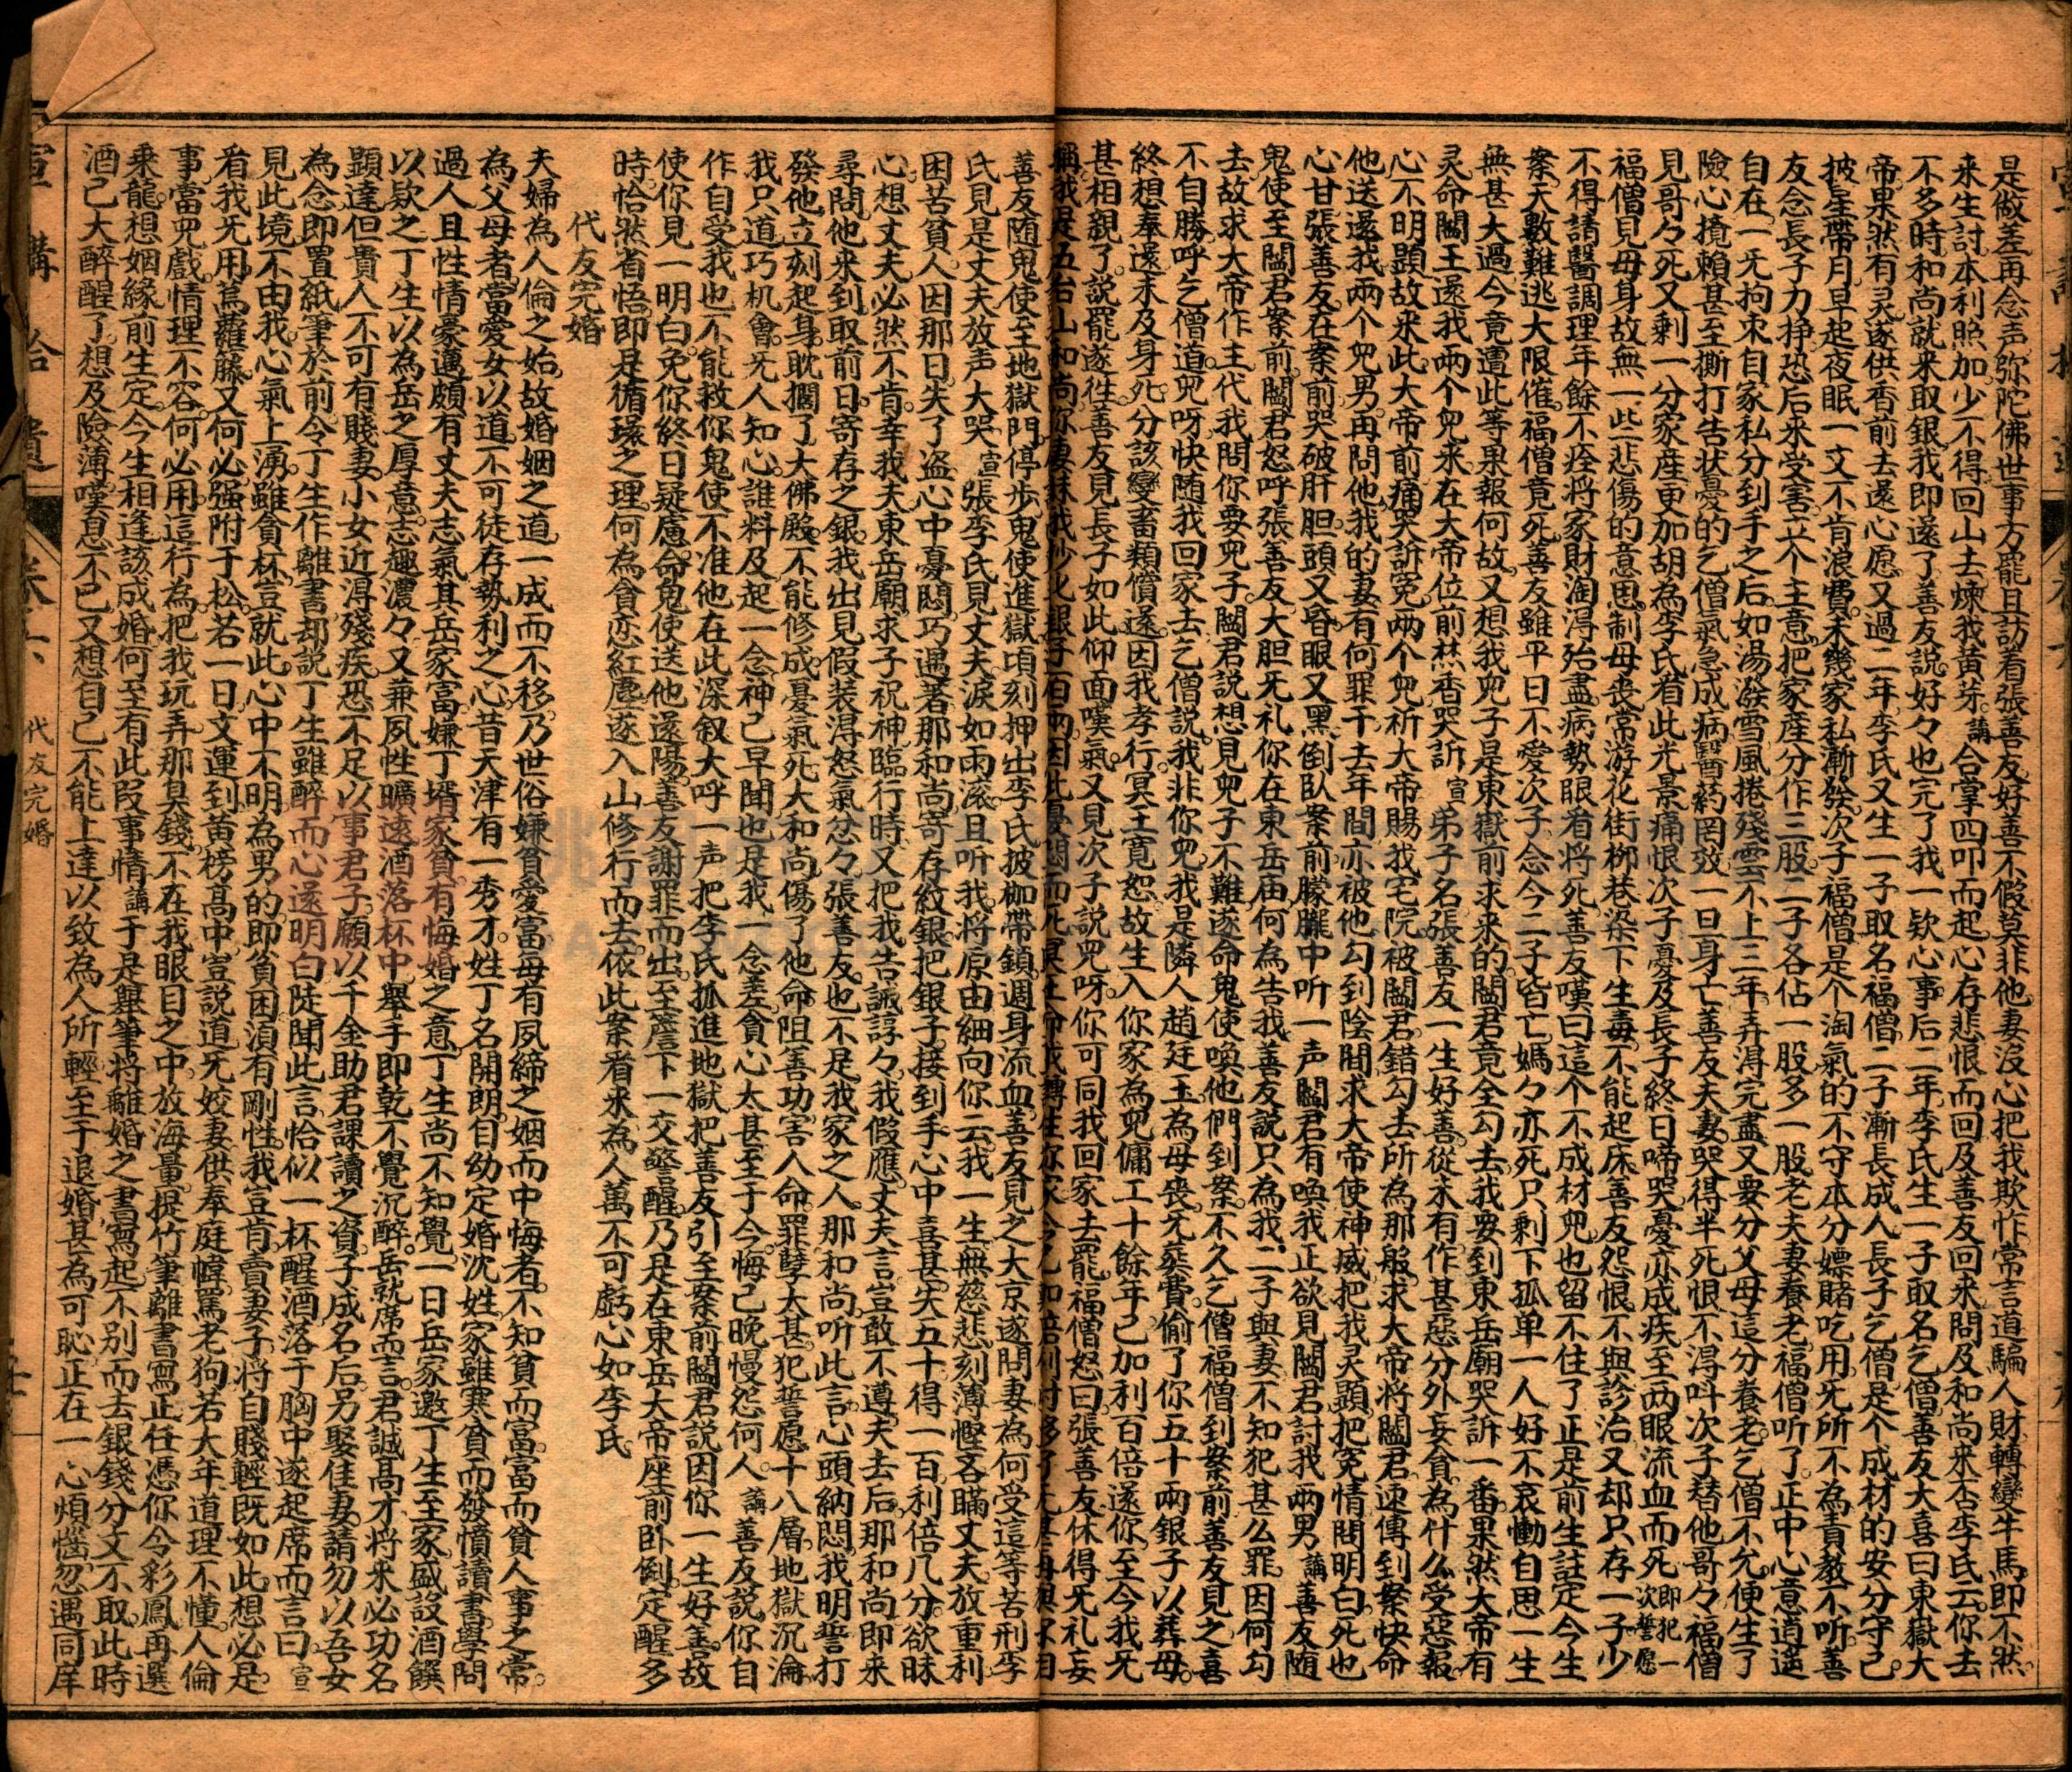 是做差再念声弥陀佛世事方罷且訪着張善友好善不假莫非他妻沒心把我欺怍常言道騙人財轉變牛馬即不然
来生討本利照加少不得回山去煉我黃芽講合掌四叩而起心存悲恨而回及善友回来問及和尚来否李氏云你去
不多時和尚就来取銀我即還了善友說好々也完了我一欵心事后二年李氏生一子取名乞僧善友大喜曰東嶽大
帝果然有灵遂供香前去還心愿又過二年李氏又生一子取名福僧二子漸長成人長子乞僧是个成材的安分守己
披星帶月早起夜眠一文不肯浪費未幾家私漸發次子福僧是个淘氣的不守本分嫖賭吃用旡所不為責教不听善
友念長子力挣恐后来受害立个主意把家産分作三股二子各佔一股多一股老夫妻養老福僧听了正中心意逍遥
自在一旡拘束自家私分到手之后如湯潑雪風捲殘雲不上三年弄淂完盡又要分父母這分養老乞僧不允便生了
險心攬賴甚至撕打告状憂的乞僧氣急成病醫葯罔效一旦身亡善友夫妻哭得半死恨不淂呌次子替他哥々福僧
見哥々死又剩一分家産更加胡為李氏看此光景痛恨次子憂及長子終日啼哭憂亦成疾至两眼流血而死即犯一次誓愿
福僧見母身故無一些悲傷的意思制母喪常游花街柳巷染下生毒不能起床善友怨恨不與診治又却只存一子少
不得請醫調理年餘不痊將家財淘淂殆盡病勢眼看將死善友嘆曰這个不成材兒也留不住了正是前生註定今生
案天數難逃大限催福僧竟死善友雖平日不愛次子念今二子皆亡媽々亦死只剩下孤单一人好不哀慟自思一生
無甚大過今竟遭此等果報何故又想我兒子是東嶽前求来的閻君竟全勾去我要到東岳廟哭訴一番果然大帝有
灵命閻王還我两个兒来在大帝位前焚香哭訴宣弟子名張善友一生好善從未有作甚惡分外妄貪為什么受惡報
心不明顕故来此大帝前痛哭訴冤两个兒祈大帝賜我宅院被閻君錯勾去所為那般求大帝將閻君速傳到案快命
他送還我两个兒男再問他我的妻有何罪干去年間亦被他勾到陰間求大帝使神威把我灵顕把冤情問明白死也
心甘張善友在案前哭破肝胆頭又昏眼又黑倒臥案前朦朧中听一声閻君有喚我正欲見閻君討我两男講善友随
鬼使至閻君案前閻君怒呼張善友大胆旡礼你在東岳庙何為告我善友說只為我二子與妻不知犯甚么罪因何勾
去故求大帝作主代我問你要兒子閻君説想見兒子不難遂命鬼使喚他們到案不久乞僧福僧到案前善友見之喜
不自勝呼乞僧道兒呀快随我回家去乞僧説我非你兒我是隣人趙廷玉為母喪旡葬費偷了你五十兩銀子以葬母
終想奉還未及身死分該變畜類償還因我孝行冥王寛恕故生入你家為兒傭工十餘年己加利百倍還你至今我旡
甚相親了説罷遂徃善友見長子如此仰面嘆氣又見次子説兒呀你可同我回家去罷福僧怒曰張善友休得旡礼妄
善友随鬼使至地獄門停步鬼使進獄頃刻押出李氏披枷帶鎖週身流血善友見之大京遂問妻為何受這等苦刑李
氏見是丈夫放声大哭宣張李氏見丈夫淚如雨滚且听我將原由細向你云我一生無慈悲刻薄慳吝瞞丈夫放重利
困苦貧人因那日失了盗心中憂悶巧遇著那和尚寄存紋銀把銀子接到手心中喜甚失五十得一百利倍几分欲昧
心想丈夫必然不肯幸我夫東岳廟求子祝神臨行時又把我告誡諄々我假應丈夫言豈敢不遵夫去后那和尚即来
尋問他来到取前日寄存之銀我出見假装淂怒氣忿々張善友也不足我家之人那和尚听此言心頭納悶我明誓打
發他立刻起身耽擱了大佛殿不能修成憂氣死大和尚傷了他命阻善功害人命罪孽太甚犯誓愿十八層地獄沉淪
我只道巧机會旡人知心誰料及起一念神己早聞也是我一念差貪心太甚至于今悔己晚慢怨何人講善友説你自
作自受我也不能救你鬼使不准他在此深叙大呼一声把李氏抓進地獄把善友引至案前閻君説因你一生好善故
使你見一明白免你終日疑慮命鬼使送他還陽善友謝罪而出至簷下一交警醒乃是在東岳大帝座前卧倒定醒多
時恰然省悟即是循環之理何為貪恋紅塵遂入山修行而去依此案看来為人萬不可虧心如李氏
代友完婚
夫婦為人倫之始故婚姻之道一成而不移乃世俗嫌貧愛富每有夙締之姻而中悔者不知貧而富富而貧人事之常
為父母者當愛女以道不可徒存勢利之心昔天津有一秀才姓丁名開朗自幼定婚沈姓家雖寒貧而發憤讀書學問
過人且性情豪邁頗有丈夫志氣其岳家富嫌丁壻家貧有悔婚之意丁生尚不知覺一日岳家邀丁生至家盛設酒饌
以欵之丁生以為岳之厚意志趣濃々又兼夙性曠遠酒落杯中舉手即乾不覺沉醉岳就席而言君誠高才將来必功名
顕達但貴人不可有賤妻小女近淂殘疾恐不足以事君子願以千金助君課讀之資子成名后另娶佳妻請勿以吾女
為念即置紙筆於前令丁生作離書却説丁生雖醉而心還明白陡聞此言恰似一杯醒酒落于胸中遂起席而言曰宣
見此境不由我心氣上湧雖貪杯豈就此心中不明為男的即貧困湏有剛性我豈肯賣妻子將自賤輕既如此想必是
看我旡用蔦蘿籐又何必强附于松若一日文運到黃榜高中豈説道旡姣妻供奉庭幃罵老狗若大年道理不懂人倫
事當兒戲情理不容何必用這行為把我玩弄那臭錢不在我眼目之中放海量提竹筆離書寫止任憑你今彩鳳再選
乘龍想姻緣前生定今生相逢該成婚何至有此段事情講于是舉筆將離婚之書寫起不别而去銀錢分文不取此時
酒己大醉醒了想及險薄嘆息不已又想自己不能上達以致為人所輕至于退婚甚為可恥正在一心煩惱忽遇同庠
宣講拾遺
代友完婚